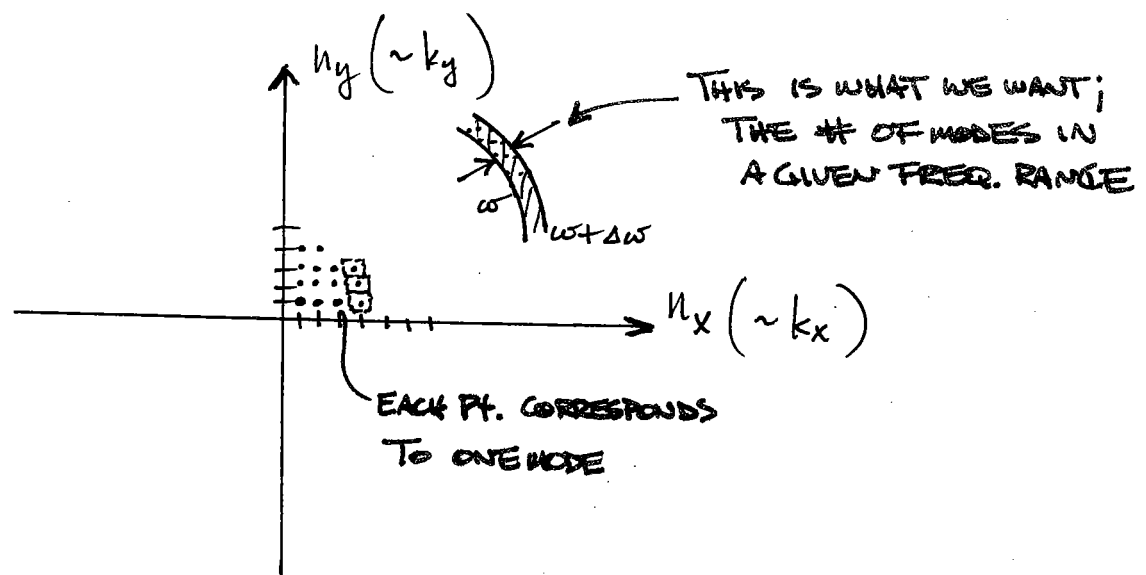 ny (~ ky)
THIS IS WHAT WE WANT;
THE # OF MODES IN
A GIVEN FREQ. RANGE
ω
ω+Δω
nx (~ kx)
EACH PT. CORRESPONDS
TO ONE MODE